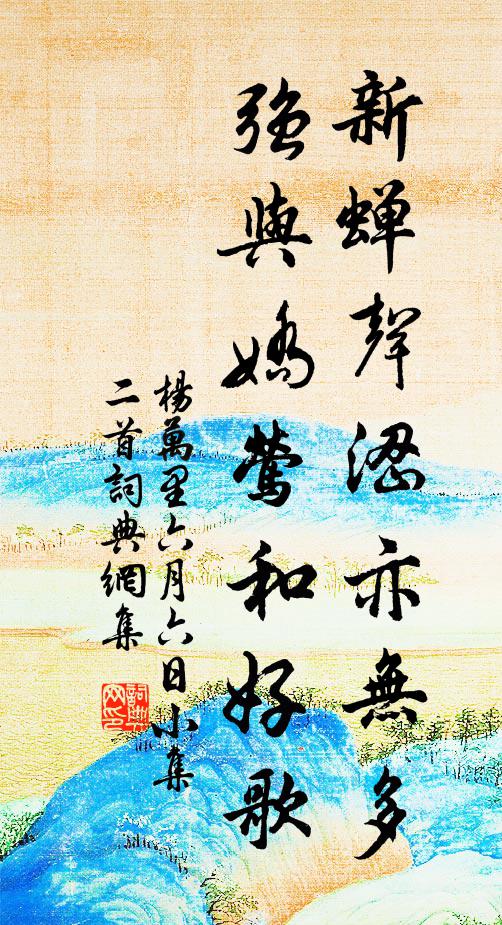 新蝉聲澀亦無多
強與嬌鶯和好歌
楊萬里六月六日小集
二首詞典網集
詞典網印